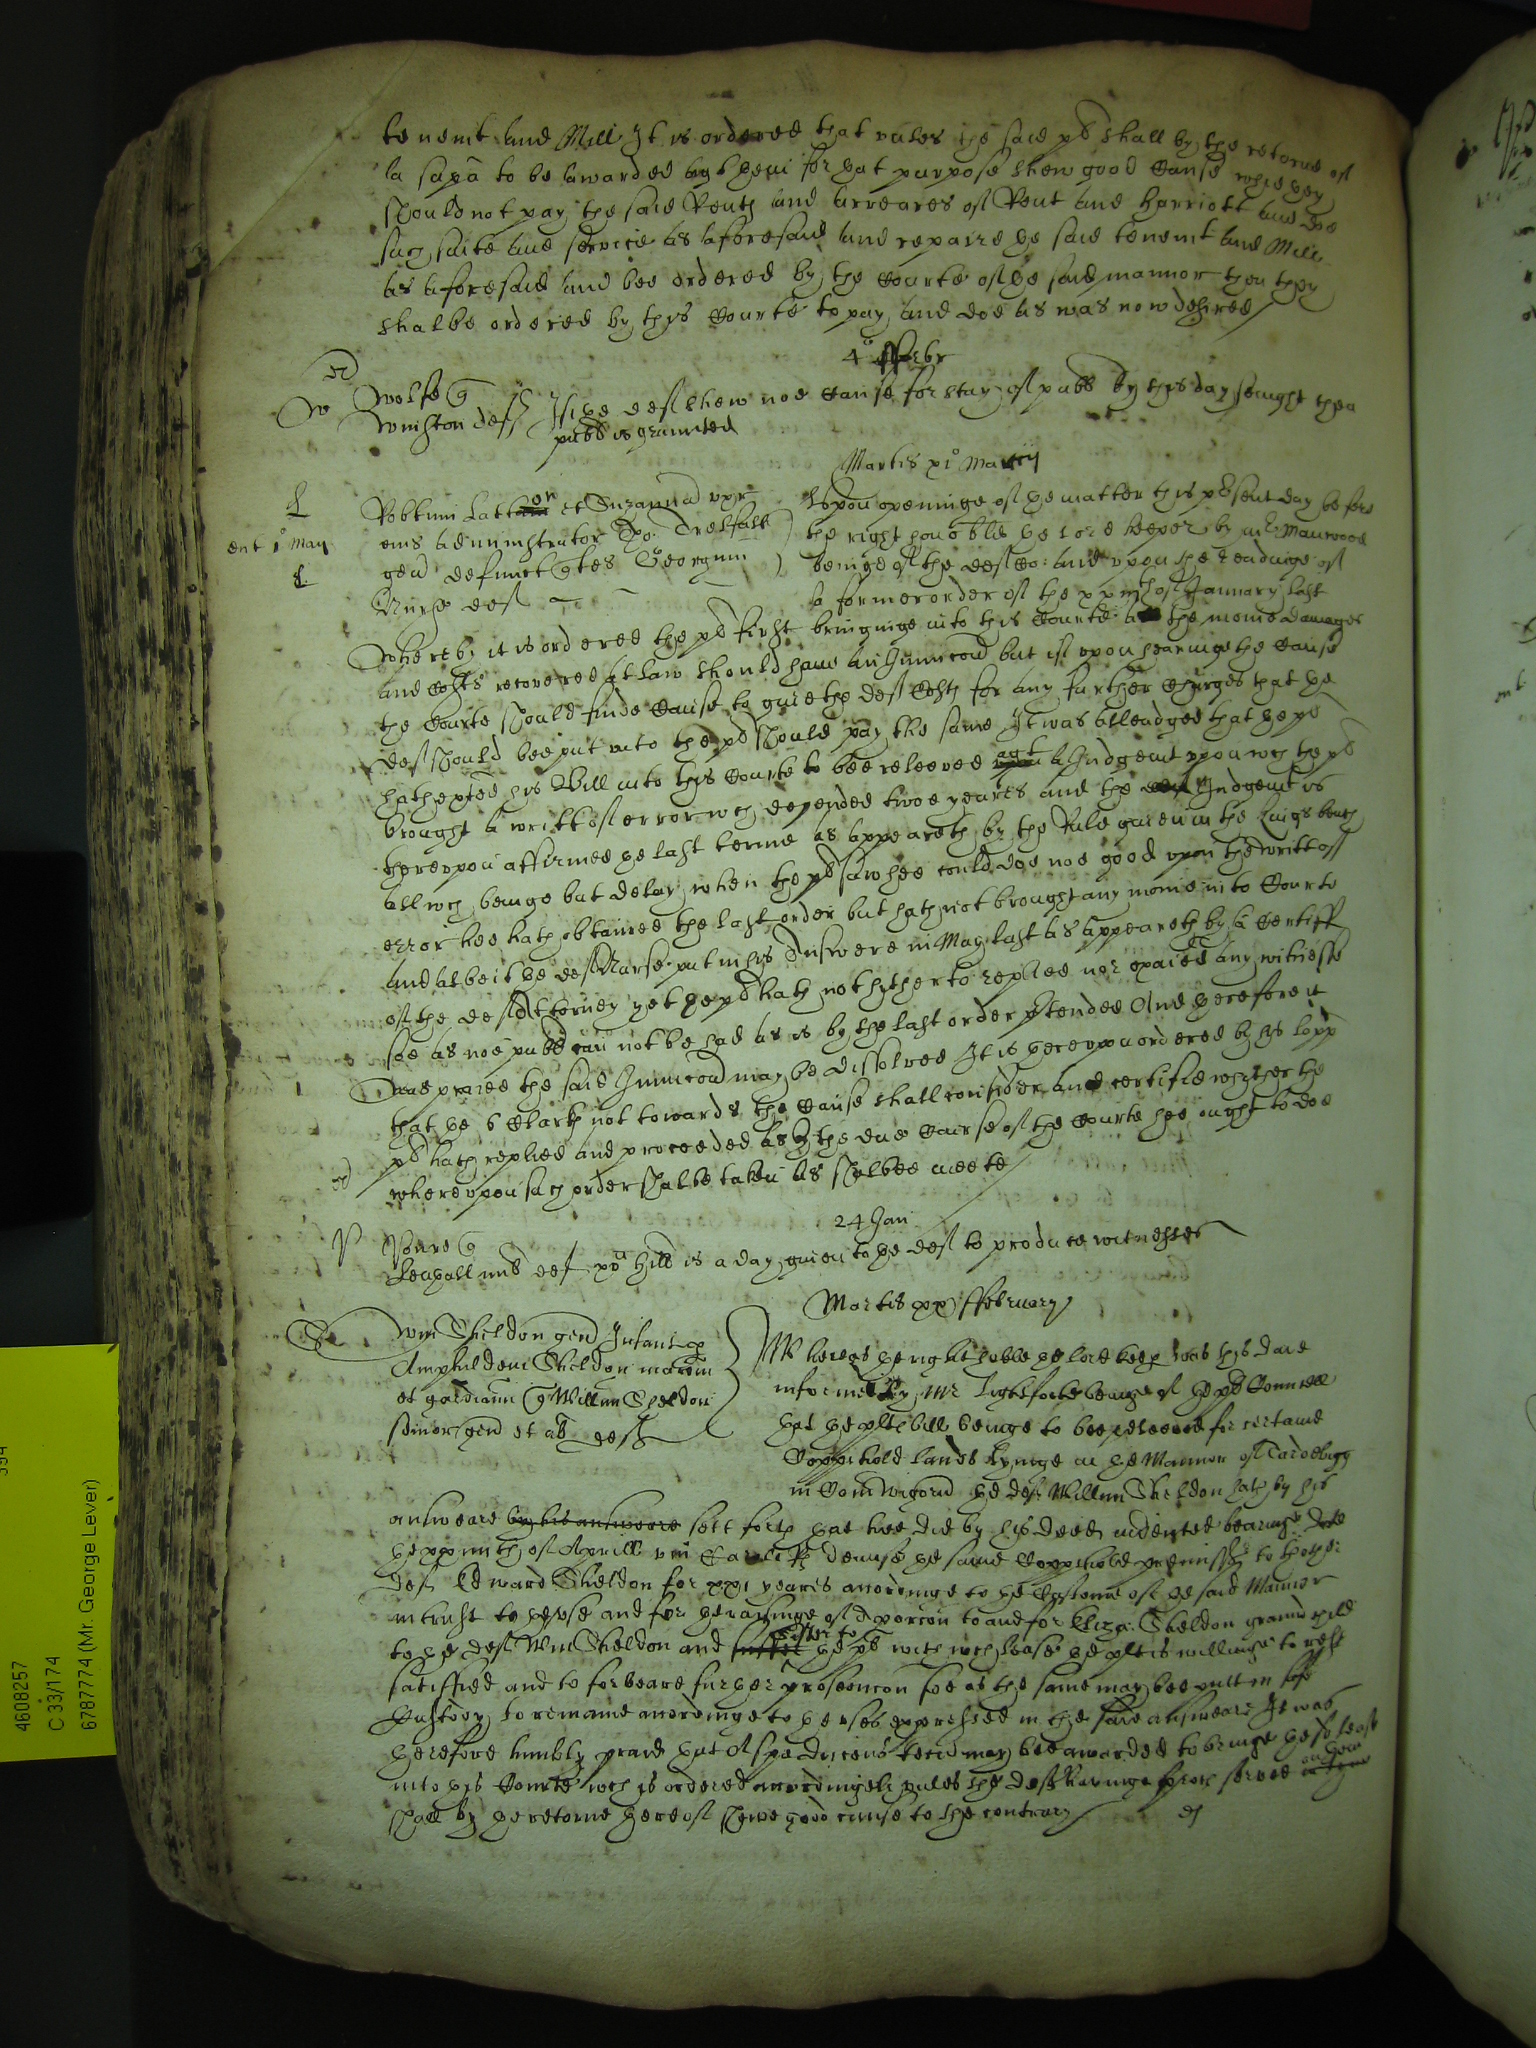 tenemt and Mill It is ordered that unles the said pl shall by the retorne of
la sapa to be awarded agt them for that purpose shew good cause why they
should not pay the said Rents and arreares of Rent and harriott and doe
such suite and service as aforesaid and repaire the said tenemt and Mill
as aforesaid and bee ordered by the Courte of the said mannor then they
shalbe ordered by this Courte to pay and doe as was now desired
4° ffebr
Wolfe q
Winston def If the def shew noe cause for stay of publ by this day senight then
publ is graunted
Martis xi° Marcij
Robtum Latton et Suzanna uxr
eius administrator
gen defunct qtes Georgium
Nurse def
ent 1° May
Upon openinge of the matter this psent day before
the right honoble the lord keeper by mr Manwood
beinge of the def co: and upon the readinge of
a former order of the of January last
Whereby it is ordered the pl first bringinge into this Courte the monie damages
and Costs recovered at law should have an Iniunccon but if upon hearinge the cause
the Courte should finde cause to give the def Costs for any further charges that the
def should bee put unto the pl should pay the same It was alleadged that the pl
hath exted his Bill into this Courte to bee releeved agt a Judgemt upon wch the pl
brought a writt of error wch depended twoe yeares and the Judgemt is
thereupon affirmed the last terme as appeareth by the Rule given in the kings bench
all wch beinge but delay when the pl saw hee could doe noe good upon the writt of
error hee hath obtained the last order but hath not brought any monie into Courte
and albeit the def Nurse put in his Answere in May last as appeareth by a Certiff
of the def Attorney yet the pl hath not hytherto replied nor exaied any witnesse
soe as noe publ can not be had as is by the last order ptended And therefore it
was praied the said Iniunccon may be dissolved It is hereupon ordered by his lopp
that the 6 Clark not towards the cause shall consider and certifie whyther the
pl hath replied and proceeded as by the due course of the Courte hee ought to doe
whereupon such order shalbe taken as shalbee meete
24 Jan
q
def xv hill is a day given to the def to produce witnesses
Martis xx ffebruary
Wm Sheldon gen Infant p
Sheldon matrem
et gardianu q Willum Sheldon
senior gen et al def
Whereas the right hoble the lord keep was this daie
informed by Mr Lightfoote beinge of the pl Counsell
that the pltes bill beinge to bee releeved for certaine
Coppihold lands lyinge in the Mannor of Tardebigg
in Com Wigorn the def Willum Sheldon hath by his
answeare by his answeare sett forth that hee did by his deed indented bearinge date
the of Aprill viii Caroli R demise the same Coppihold premisses to thother
def Edward Sheldon for xxi yeares accordinge to the Custome of the said Mannor
in trust to the use and for the raisinge of A porcon to and for Eliza: Sheldon graund child
to the def Wm Sheldon and sister to the pl with wch lease the plt is willinge to rest
satisfied and to forbeare further prosecucon soe as the same may bee putt in safe
Custody to remaine accordinge to the uses expressed in the said answeare It was
therefore humbly praied that A spa Ducens tecu may bee awarded to bringe the sd lease
into this Courte wch is ordered accordingly unles the def havinge proces served on them
shall by the retorne thereof shewe good cause to the contrary
4608257
C 33/174
6787774 (Mr. George Lever)